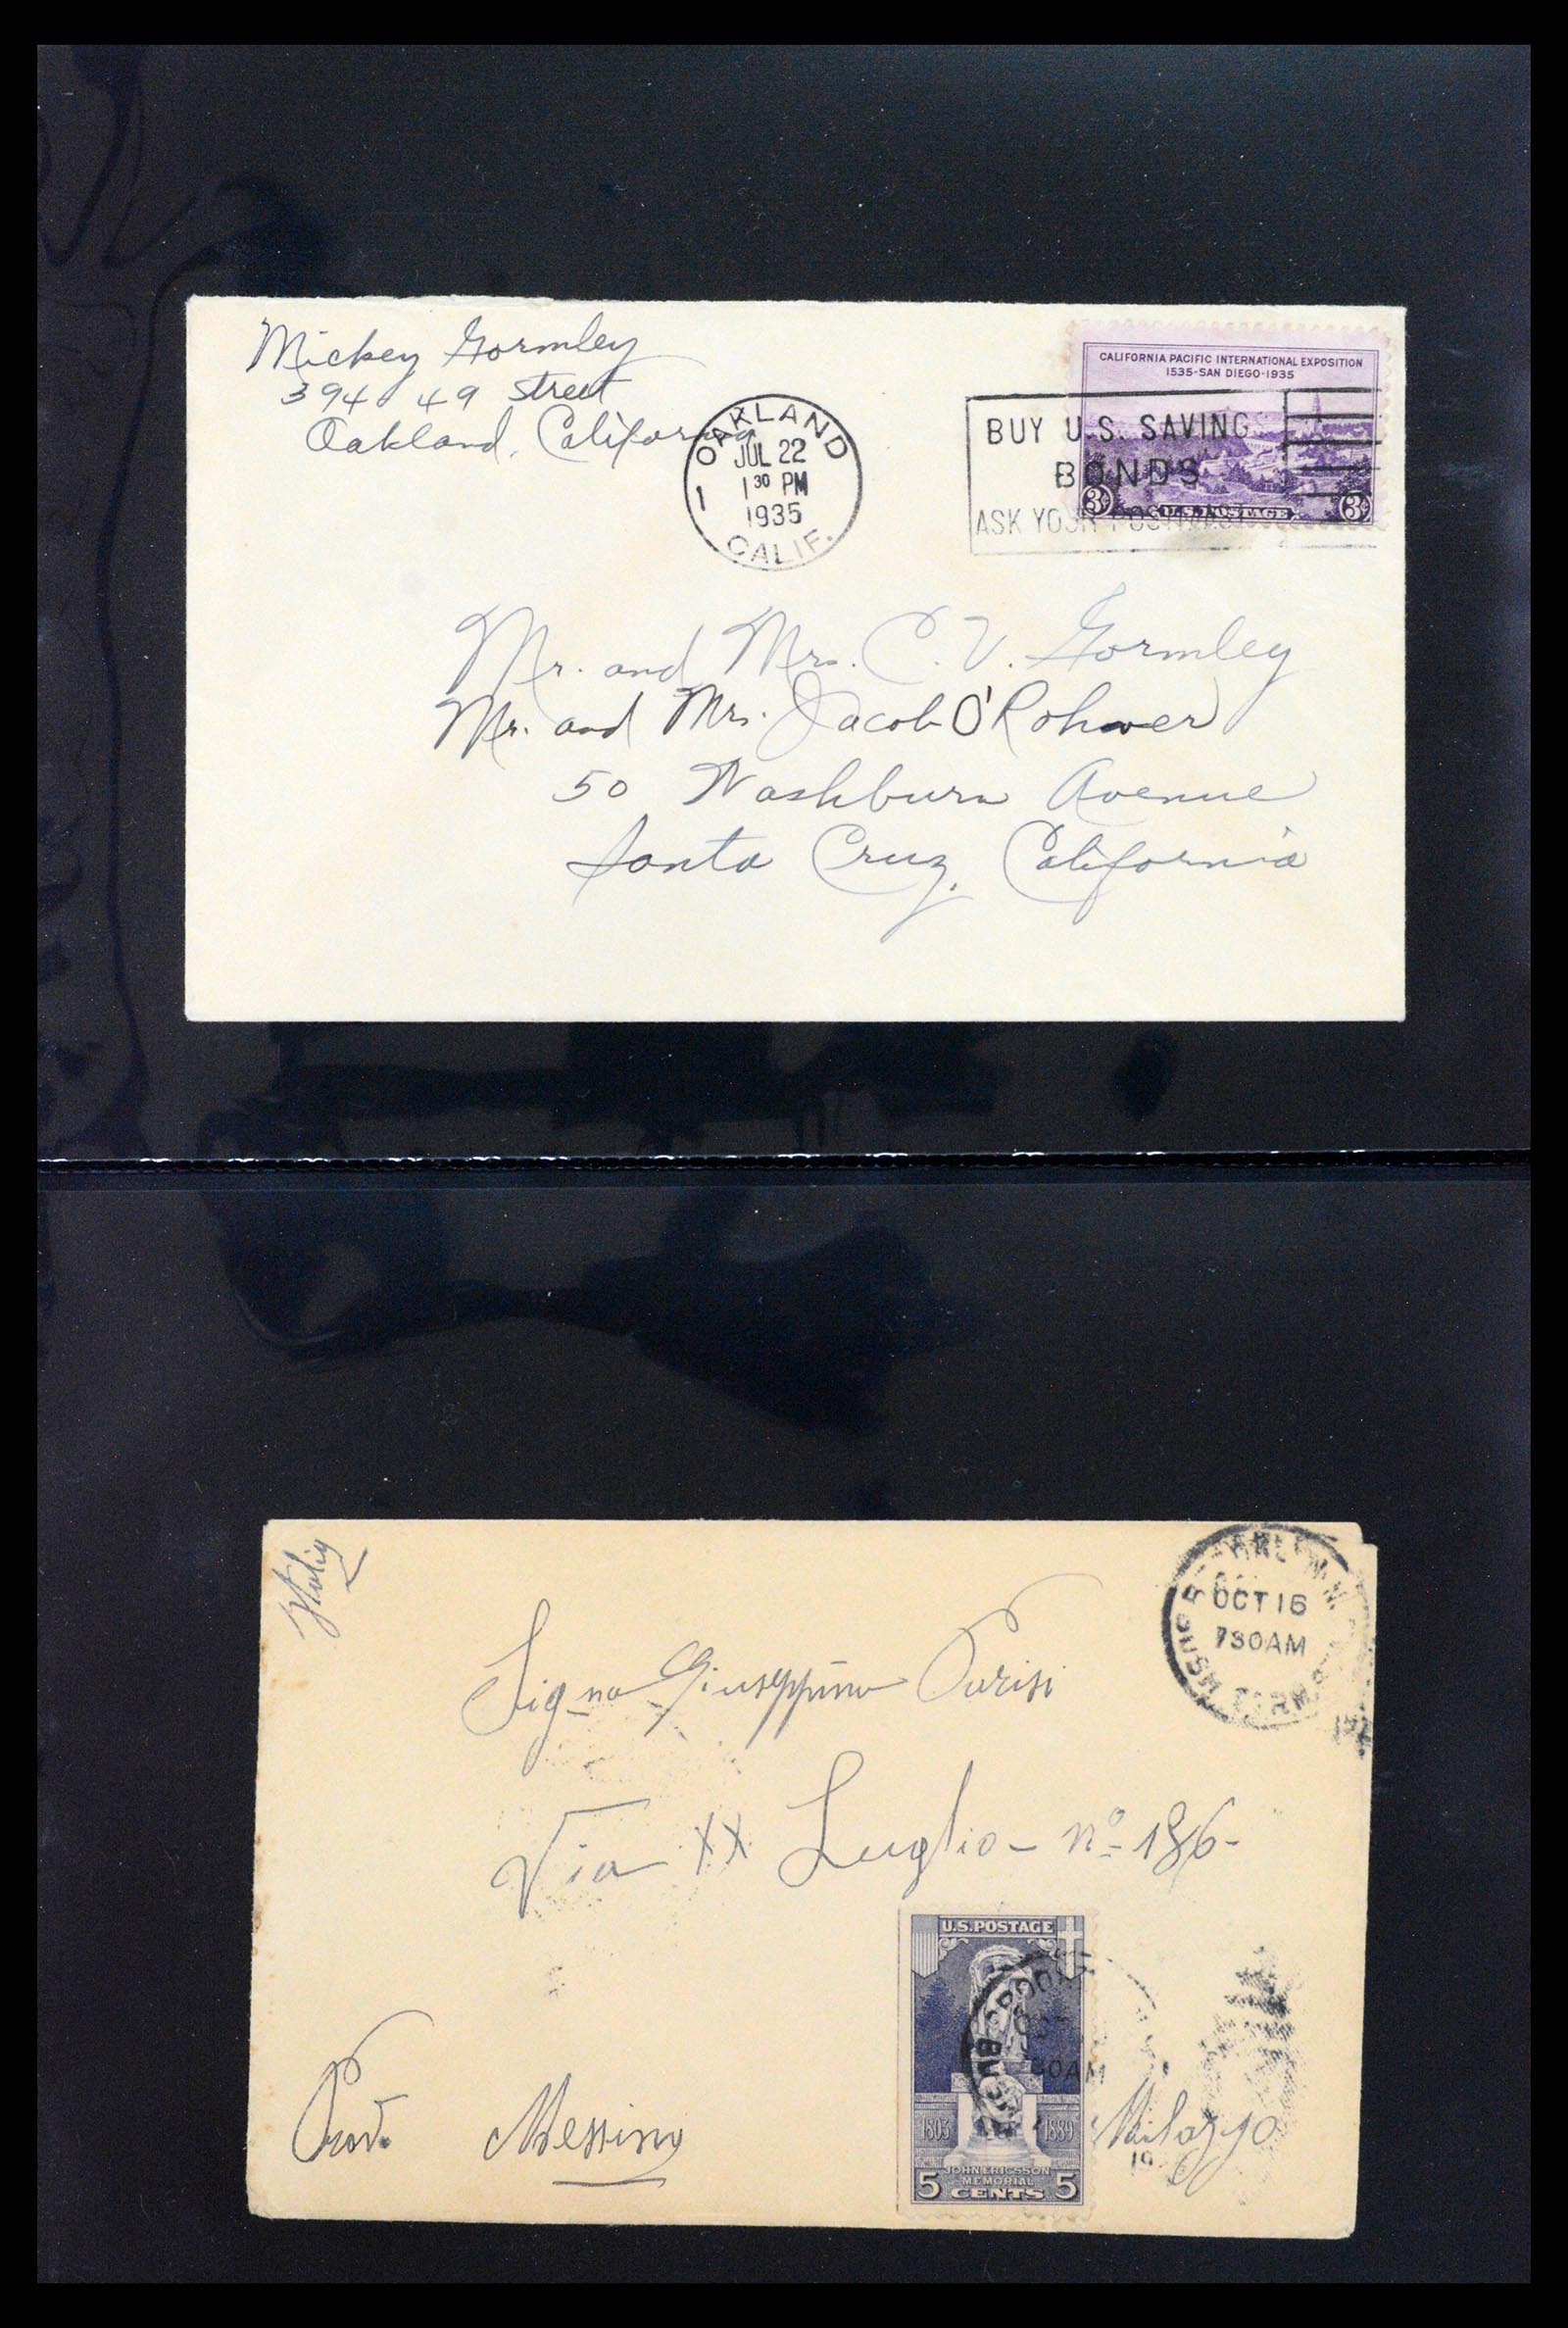 Mickey Gormley
394 49 Street
Oakland, California
OAKLAND
JUL 22
1 30 PM
1
1935
CALIF.
BUY U.S. SAVING
BONDS
ASK YOUR
CALIFORNIA PACIFIC INTERNATIONAL EXPOSITION
1535-SAN DIEGO-1935
3¢ U.S. POSTAGE 3¢
Mr. and Mrs. C. V. Gormley
Mr. and Mrs. Jacob O'Rohwer
50 Washburn Avenue
Santa Cruz, California
Italy
OCT 16
730AM
Signa Giuseppina Parisi
Via XX Luglio - nº 186-
U.S. POSTAGE
30AM
1803 1889
JOHN ERICSSON
MEMORIAL
5 CENTS 5
Prov. Messina
Milazzo